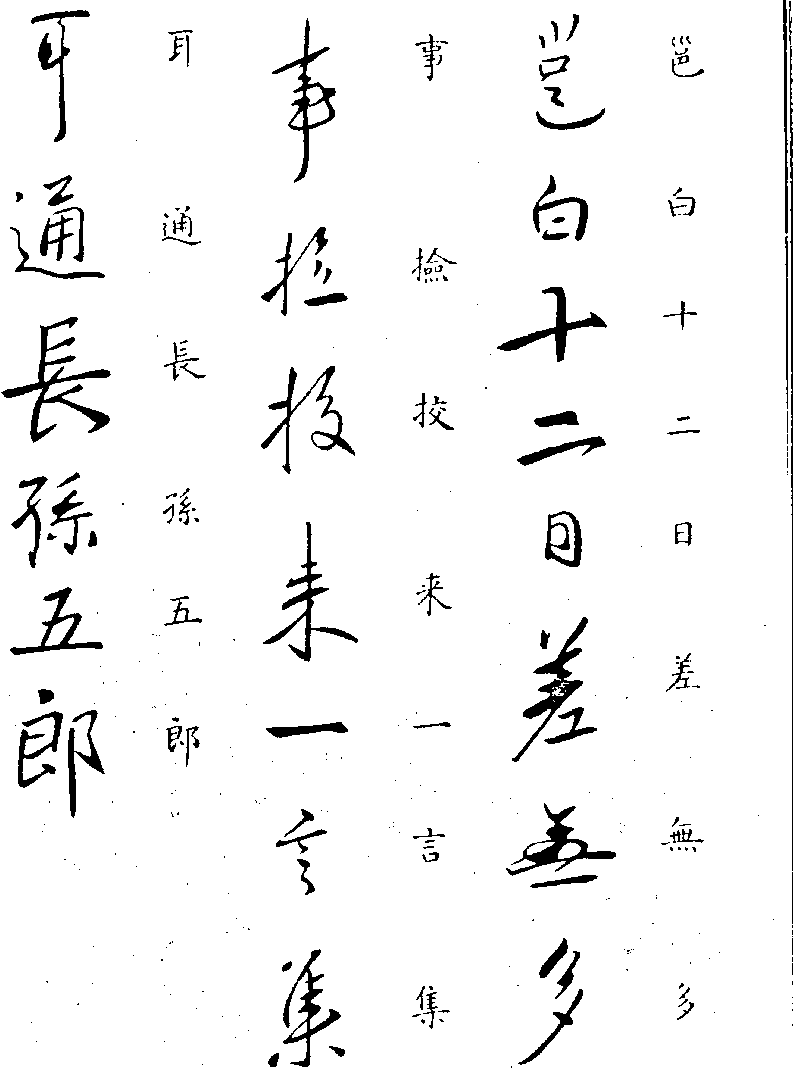 邕白十二日差無多
邕白十二日差無多
事撿挍来一言集
事撿挍来一言集
耳通長孫五郎
耳通長孫五郎